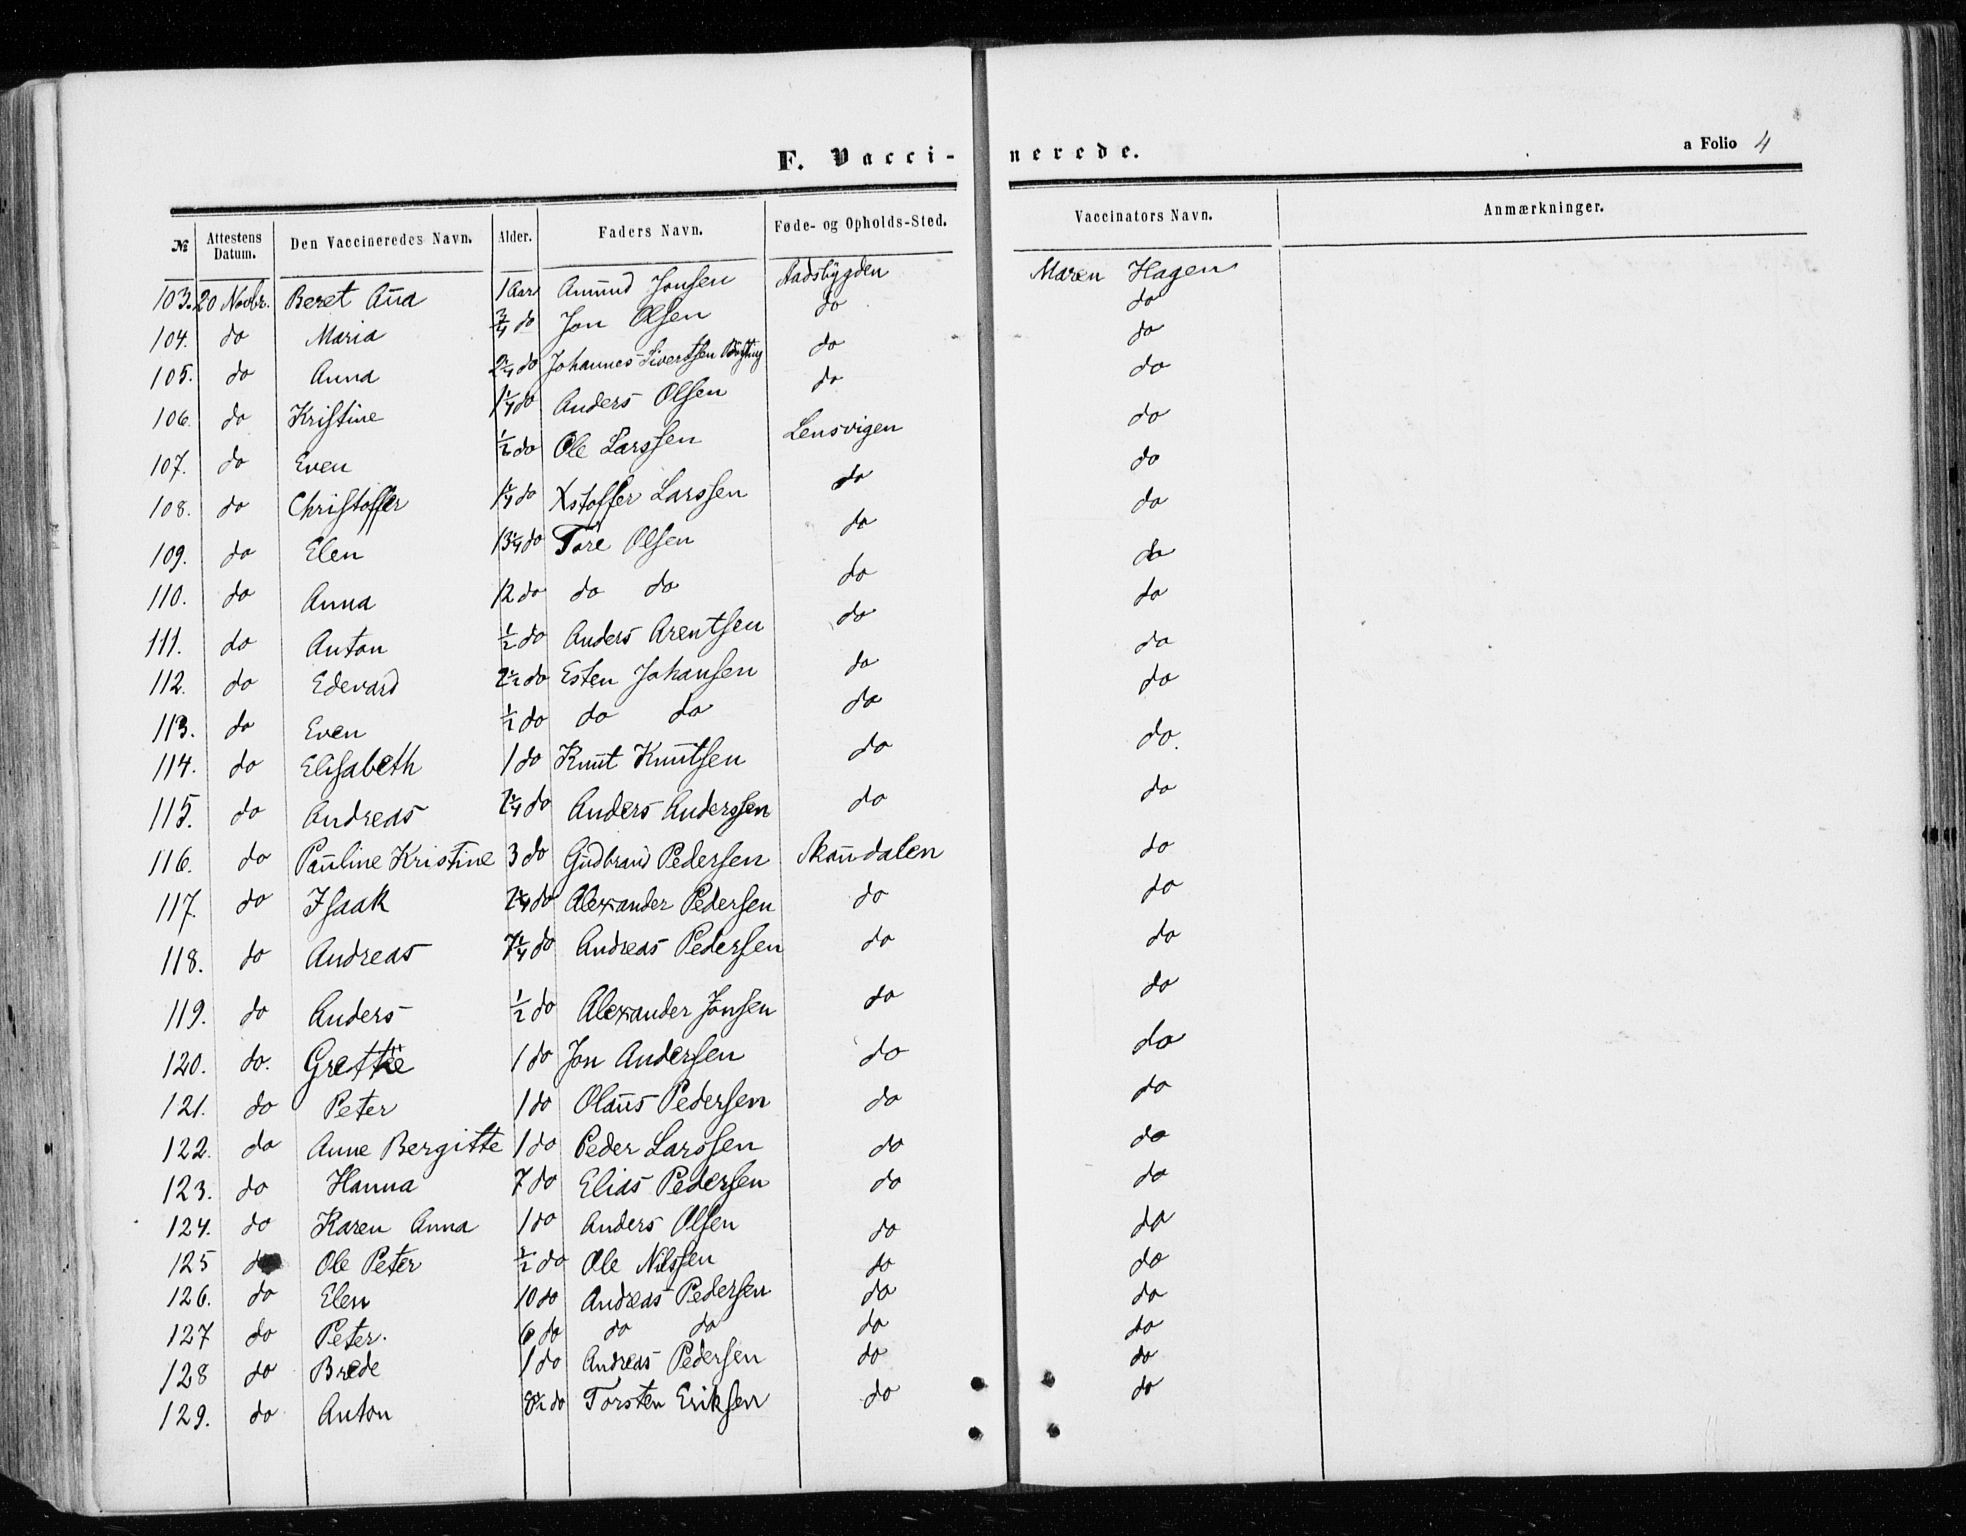 F. Vacci- nerede. a Folio 4
№ Attestens Datum. Den Vaccineredes Navn. Alder. Faders Navn. Føde- og Opholds-Sted. Vaccinators Navn. Anmærkninger.
103. 20 Novbr. Beret Aña 1 Aar Amund Jonsen Aadsbygden Maren Hagen
104. do Maria 3/4 do Jon Olsen do do
105. do Anna 2 1/4 do Johannes Sivertsen do do
106. do Kristine 1 1/4 do Anders Olsen do do
107. do Even 1/2 do Ole Larssen Lensvigen do
108. do Christoffer 1 1/4 do Xstoffer Larssen do do
109. do Elen 13 1/4 do Tore Olsen do do
110. do Anna 12 do do do do do
111. do Anton 1/2 do Anders Arentsen do do
112. do Edevard 2 1/2 do Esten Johansen do do
113. do Even 1/2 do do do do do
114. do Elisabeth 1 do Knut Knutsen do do.
115. do Andreas 1/4 do Anders Anderssen do do
116. do Pauline Kristine 3 do Gudbrand Pedersen Skaudalen do
117. do Isaak 1/4 do Alexander Pedersen do do
118. do Andreas 7 1/4 do Andreas Pedersen do do
119. do Anders 1/2 do Alexander Jonsen do do
120. do. Grethe 1 do Jon Andersen do do
121. do Peter 1 do Olaus Pedersen do do
122. do Anne Bergitte 1 do Peder Larssen do do
123. do Hanna 7 do Elias Pedersen do do
124. do Karen Anna 1 do Anders Olsen do do
125 do Ole Peter 1/2 do Ole Nilssen do do
126. do Elen 10 do Andreas Pedersen do do
127 do Peter. 6 do do do do do
128 do Brede 1 do Andreas Pedersen do do
129. do Anton 8 1/2 do Torsten Eriksen do do